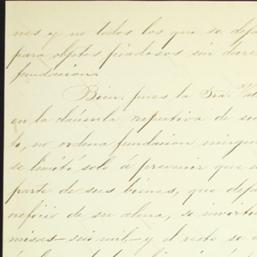 nes y no todos los que se deja
para objetos piadosos sin dar
fundacion.
Bien, pues la Sra.
en la cláusula respectiva de su
to, no ordena fundacion ningun
se limitó solo á prevenir que
parte de sus bienes, que deja
neficio de su alma, se invirti
misas seis mil y el resto se